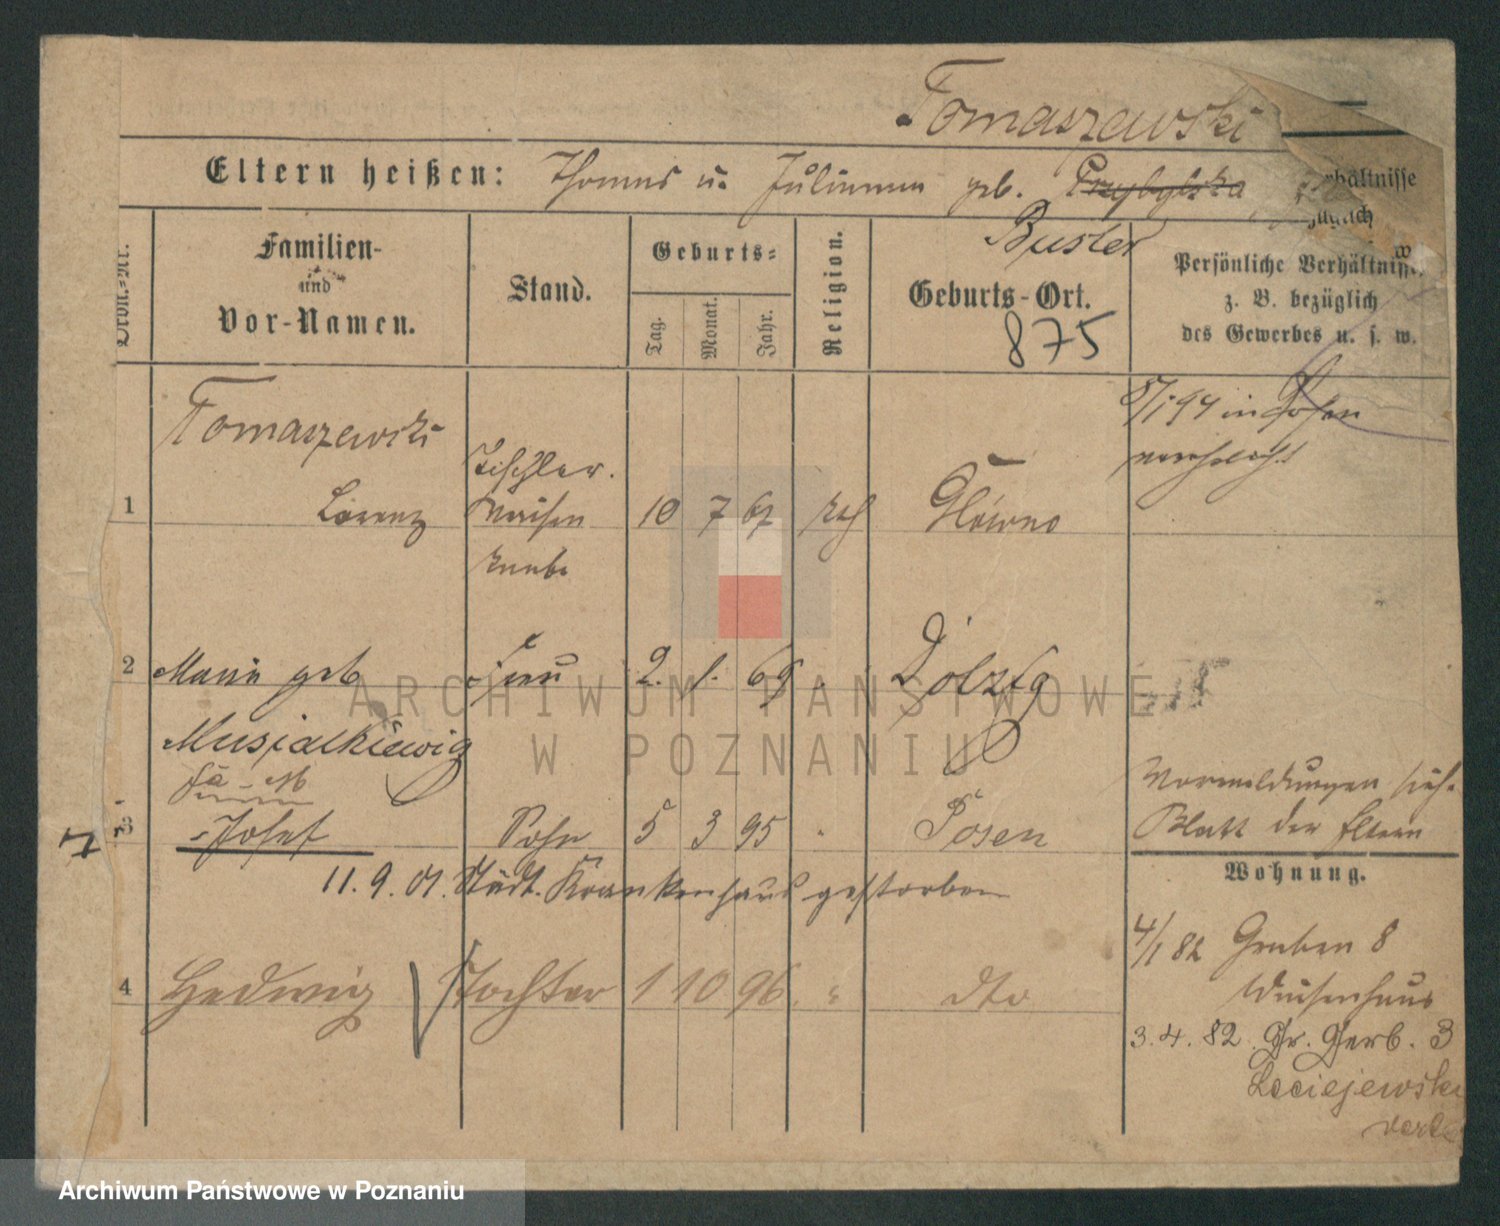 Tomaszewski
Eltern heißen: Thomas u. Julianna geb. Przybylska
Buster
rhältnisse
züglich
w
Ordn.-Nr.
Familien-
und
Vor-Namen.
Stand.
Geburts-
Tag.
Monat.
Jahr.
Religion.
Geburts-Ort.
875
Persönliche Verhältnisse,
z. B. bezüglich
des Gewerbes u. s. w.
Tomaszewski
8/1 94 in Posen
Tischler.
1 Lorenz Waisen 10 7 67 kth Główno
knabe
2 Maria geb Frau 2. 1. 69 Dolzig
Musialkiewicz
Vormeldungen sieh.
3 Josef Sohn 5 3 95 " Posen
Blatt der Eltern
11.9.01. Städt. Krankenhaus gestorben
Wohnung.
4/1 82 Graben 8
4 Hedwig Tochter 1 10 96 " dto
Waisenhaus
3.4.82. Gr. Gerb. 3
Leciejewski
ARCHIWUM PAŃSTWOWE
W POZNANIU
Archiwum Państwowe w Poznaniu